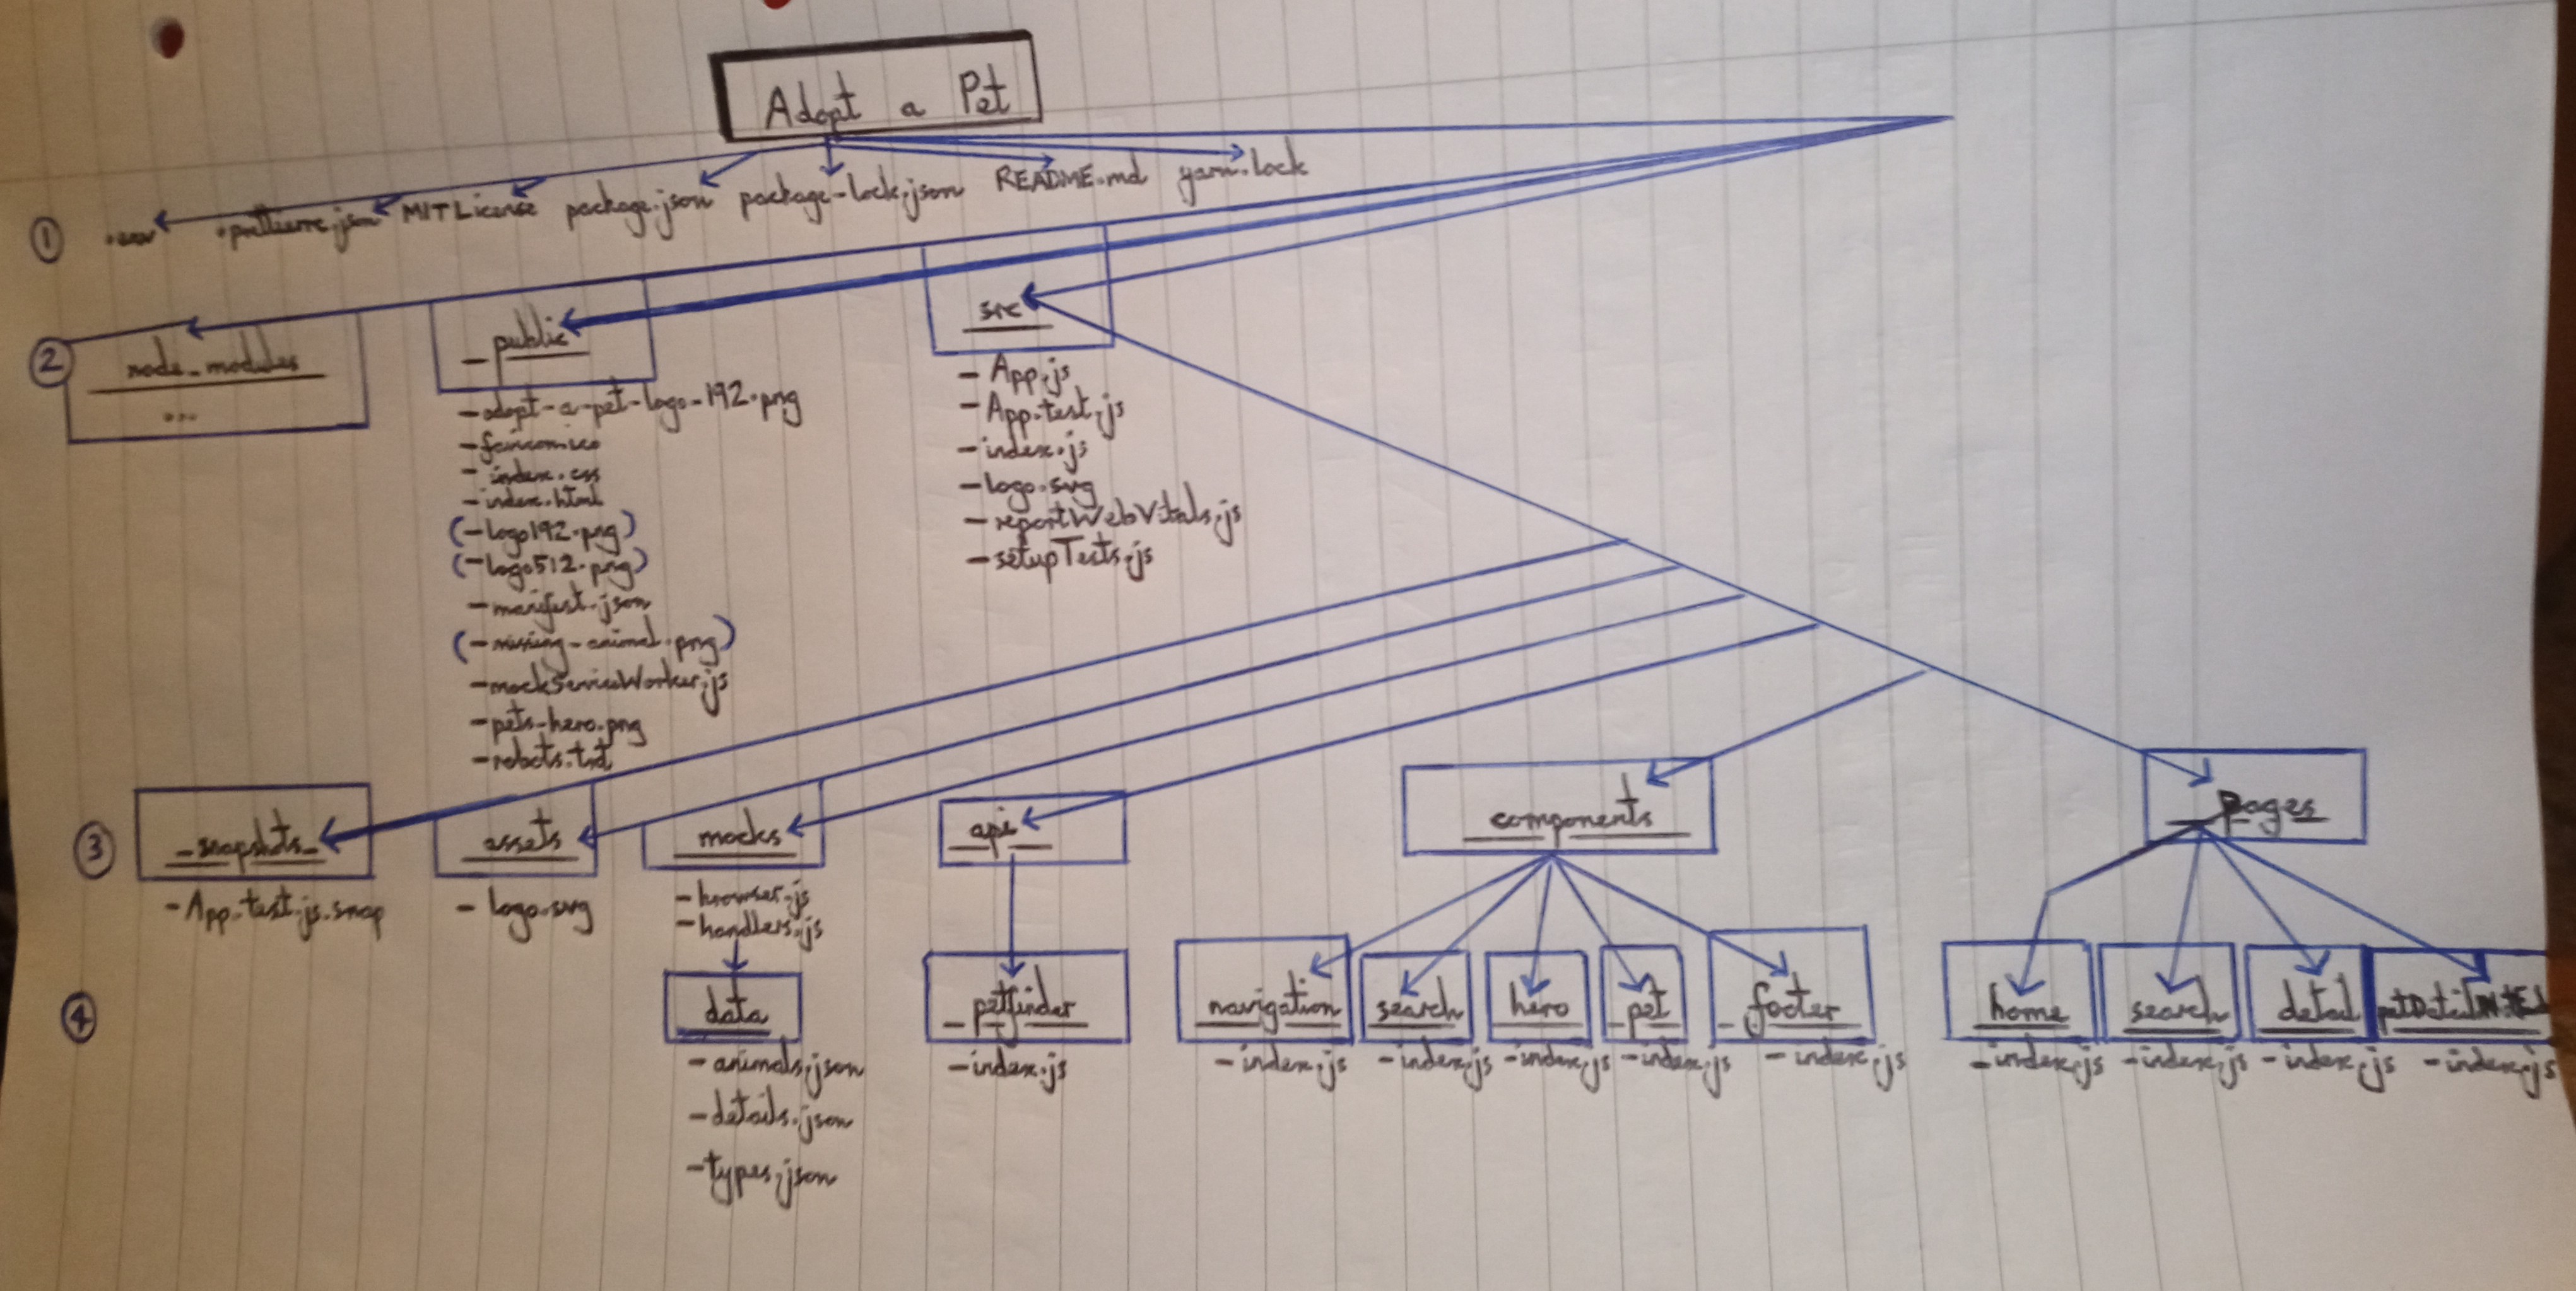 Adopt a Pet
① .env .prettierrc.json MIT License package.json package-lock.json README.md yarn.lock
② node_modules
...
public
- adopt-a-pet-logo-192.png
- favicon.ico
- index.css
- index.html
(- logo192.png)
(- logo512.png)
- manifest.json
(- missing-animal.png)
- mockServiceWorker.js
- pets-hero.png
- robots.txt
src
- App.js
- App.test.js
- index.js
- logo.svg
- reportWebVitals.js
- setupTests.js
③ _snapshots_
- App.test.js.snap
assets
- logo.svg
mocks
- browser.js
- handlers.js
api
components
pages
④ data
- animals.json
- details.json
- types.json
petfinder
- index.js
navigation
- index.js
search
- index.js
hero
- index.js
pet
- index.js
footer
- index.js
home
- index.js
search
- index.js
detail
- index.js
- index.js